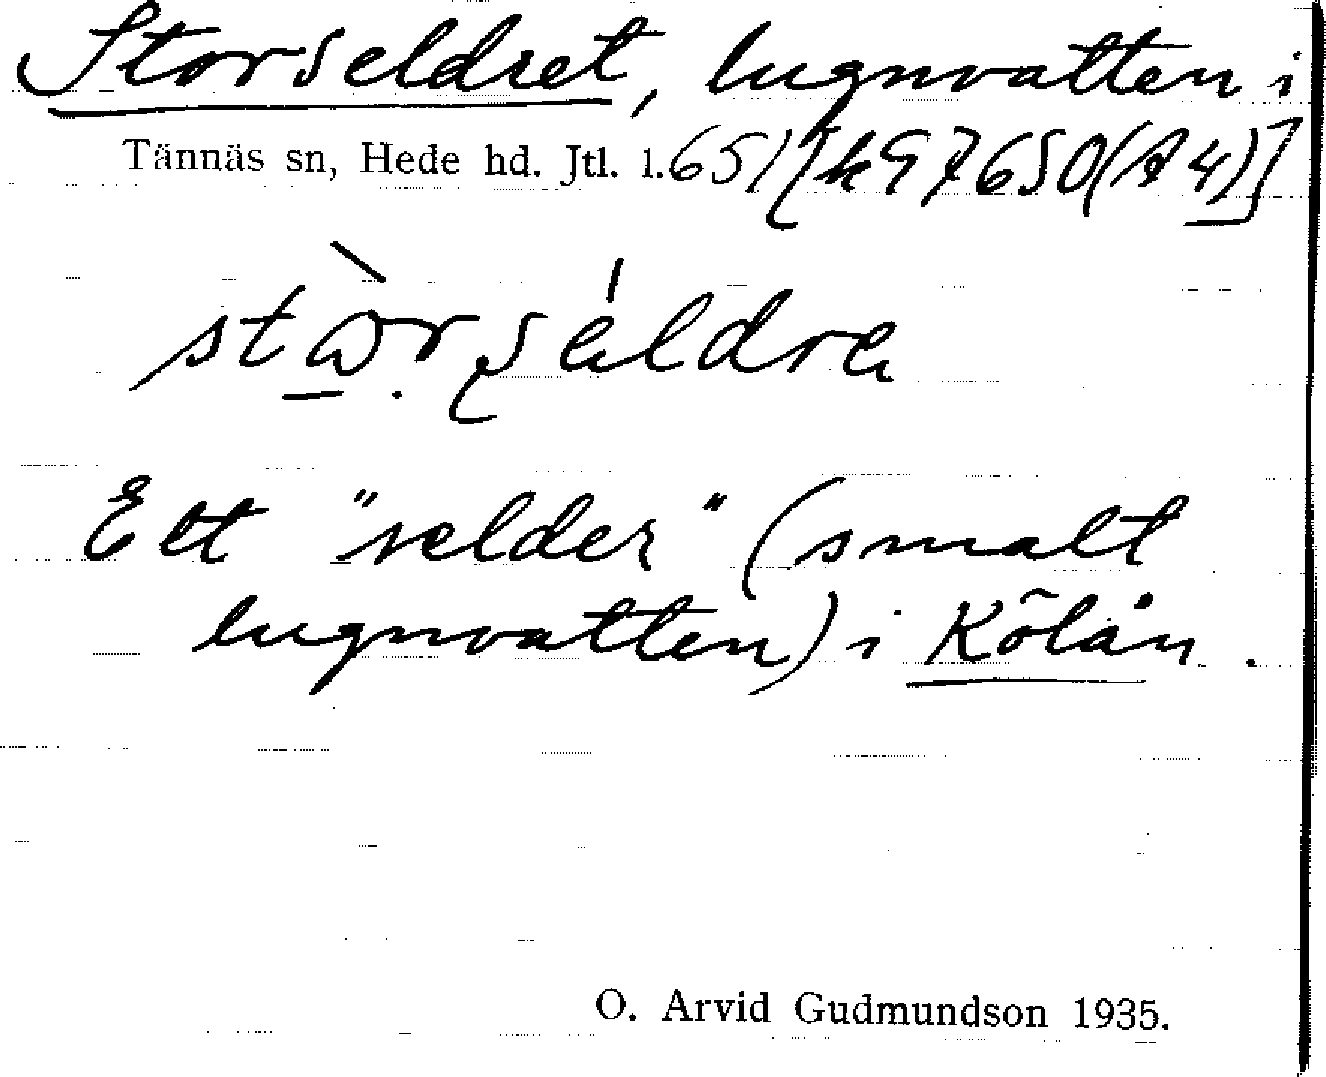 Storseldret, lugnvatten i
Tännäs sn, Hede hd. Jtl. l. 651 [k97650(A4)]
Ett "selder" (smalt
lugnvatten) i Kölån.
O. Arvid Gudmundson 1935.